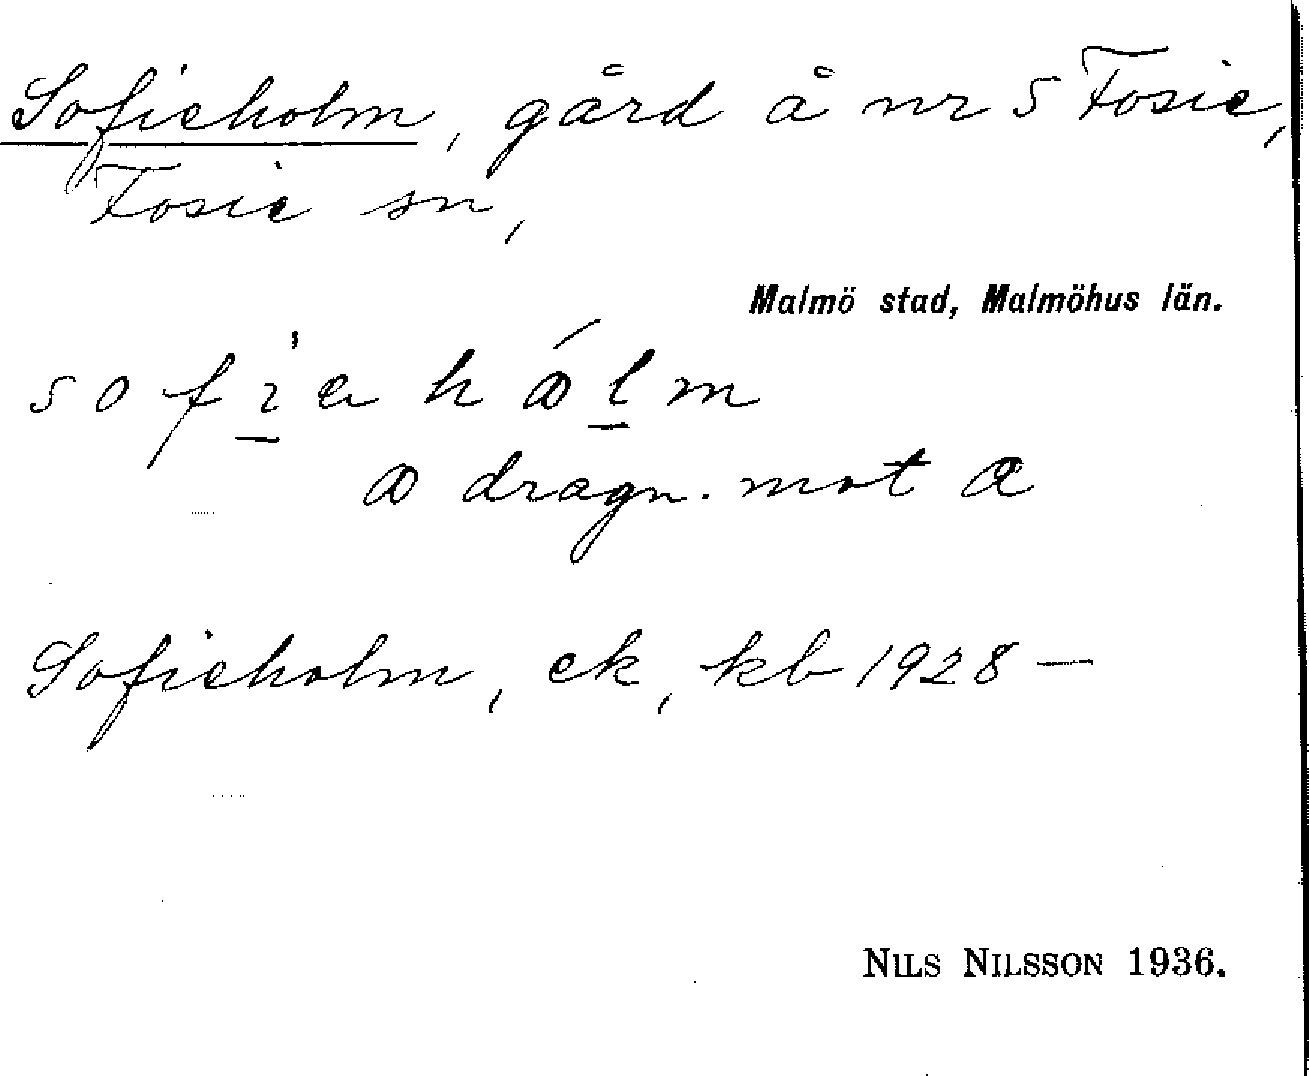 Sofieholm, gård å nr 5 Fosie,
Fosie sn,
Malmö stad, Malmöhus län.
dragn. mot
Sofieholm, ek, kb 1928 —
NILS NILSSON 1936.